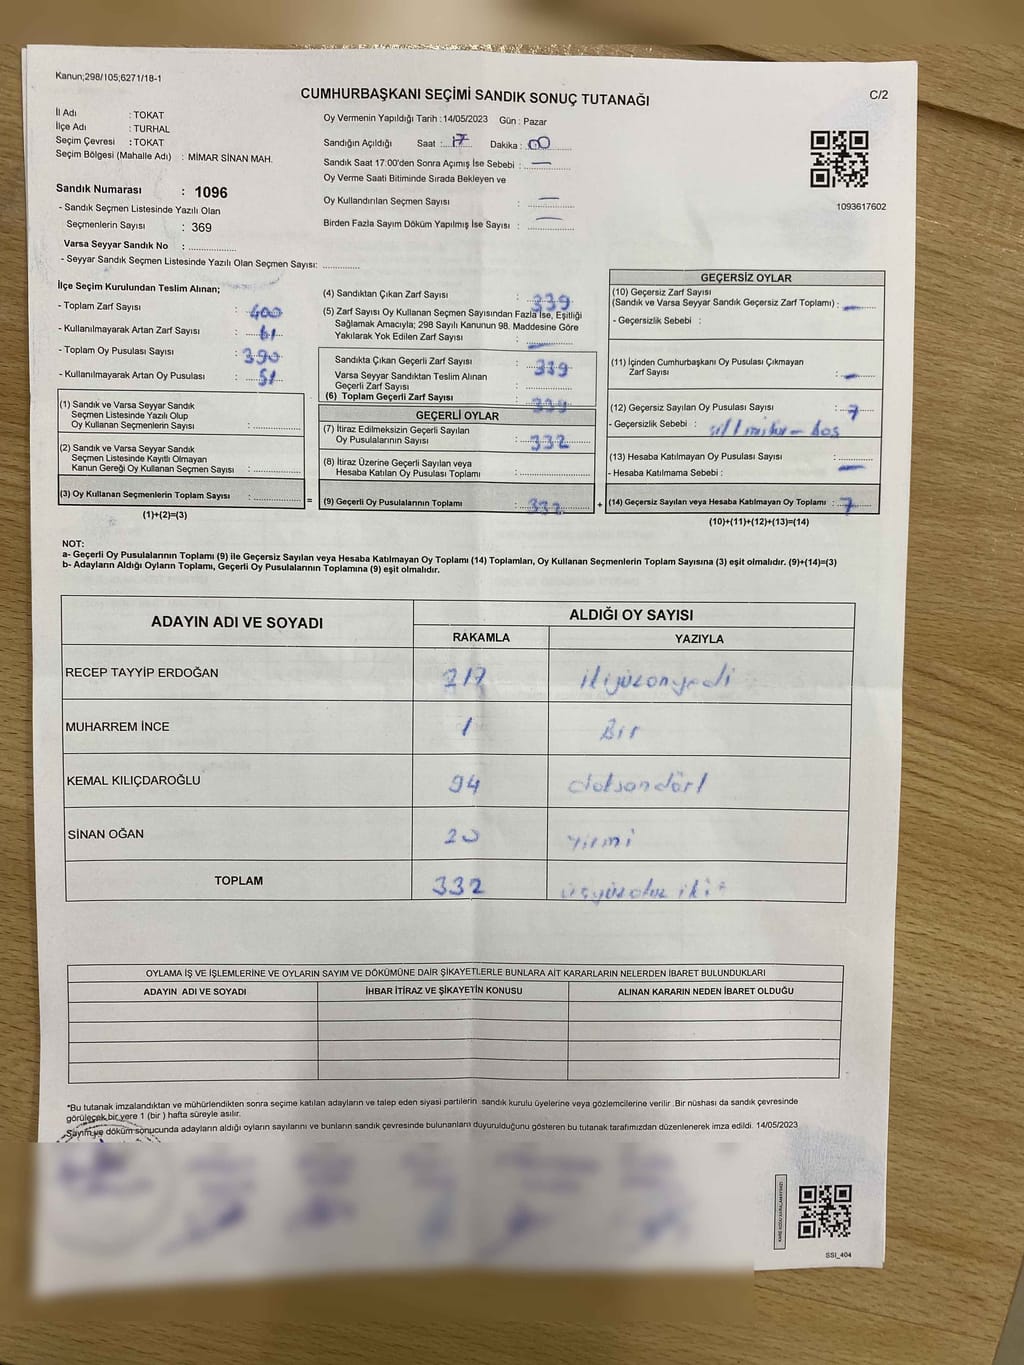 Kanun;298/105;6271/18-1
CUMHURBAŞKANI SEÇİMİ SANDIK SONUÇ TUTANAĞI
C/2
İl Adı : TOKAT
İlçe Adı : TURHAL
Seçim Çevresi : TOKAT
Seçim Bölgesi (Mahalle Adı) : MİMAR SİNAN MAH.
Sandık Numarası : 1096
- Sandık Seçmen Listesinde Yazılı Olan
Seçmenlerin Sayısı : 369
Varsa Seyyar Sandık No : ..............
- Seyyar Sandık Seçmen Listesinde Yazılı Olan Seçmen Sayısı: ............
Oy Vermenin Yapıldığı Tarih :14/05/2023 Gün : Pazar
Sandığın Açıldığı Saat : 17 Dakika : 00
Sandık Saat 17:00'den Sonra Açımış İse Sebebi : —
Oy Verme Saati Bitiminde Sırada Bekleyen ve
Oy Kullandırılan Seçmen Sayısı : —
Birden Fazla Sayım Döküm Yapılmış İse Sayısı : —
1093617602
İlçe Seçim Kurulundan Teslim Alınan;
- Toplam Zarf Sayısı : 400
- Kullanılmayarak Artan Zarf Sayısı : 61
- Toplam Oy Pusulası Sayısı : 390
- Kullanılmayarak Artan Oy Pusulası : 51
(1) Sandık ve Varsa Seyyar Sandık
Seçmen Listesinde Yazılı Olup
Oy Kullanan Seçmenlerin Sayısı :
(2) Sandık ve Varsa Seyyar Sandık
Seçmen Listesinde Kayıtlı Olmayan
Kanun Gereği Oy Kullanan Seçmen Sayısı :
(3) Oy Kullanan Seçmenlerin Toplam Sayısı :
(1)+(2)=(3)
(4) Sandıktan Çıkan Zarf Sayısı : 339
(5) Zarf Sayısı Oy Kullanan Seçmen Sayısından Fazla İse, Eşitliği
Sağlamak Amacıyla; 298 Sayılı Kanunun 98. Maddesine Göre
Yakılarak Yok Edilen Zarf Sayısı : —
Sandıkta Çıkan Geçerli Zarf Sayısı : 339
Varsa Seyyar Sandıktan Teslim Alınan
Geçerli Zarf Sayısı :
(6) Toplam Geçerli Zarf Sayısı : 339
GEÇERLİ OYLAR
(7) İtiraz Edilmeksizin Geçerli Sayılan
Oy Pusulalarının Sayısı : 332
(8) İtiraz Üzerine Geçerli Sayılan veya
Hesaba Katılan Oy Pusulası Toplamı :
= (9) Geçerli Oy Pusulalarının Toplamı : 332 +
GEÇERSİZ OYLAR
(10) Geçersiz Zarf Sayısı
(Sandık ve Varsa Seyyar Sandık Geçersiz Zarf Toplamı) : —
- Geçersizlik Sebebi :
(11) İçinden Cumhurbaşkanı Oy Pusulası Çıkmayan
Zarf Sayısı : —
(12) Geçersiz Sayılan Oy Pusulası Sayısı : 7
- Geçersizlik Sebebi : boş
(13) Hesaba Katılmayan Oy Pusulası Sayısı :
- Hesaba Katılmama Sebebi : —
(14) Geçersiz Sayılan veya Hesaba Katılmayan Oy Toplamı : 7
(10)+(11)+(12)+(13)=(14)
NOT:
a- Geçerli Oy Pusulalarının Toplamı (9) ile Geçersiz Sayılan veya Hesaba Katılmayan Oy Toplamı (14) Toplamları, Oy Kullanan Seçmenlerin Toplam Sayısına (3) eşit olmalıdır. (9)+(14)=(3)
b- Adayların Aldığı Oyların Toplamı, Geçerli Oy Pusulalarının Toplamına (9) eşit olmalıdır.
ADAYIN ADI VE SOYADI ALDIĞI OY SAYISI
RAKAMLA YAZIYLA
RECEP TAYYİP ERDOĞAN 217 ikiyüzonyedi
MUHARREM İNCE 1 Bir
KEMAL KILIÇDAROĞLU 94 doksandört
SİNAN OĞAN 20 yirmi
TOPLAM 332 üçyüzotuz iki
OYLAMA İŞ VE İŞLEMLERİNE VE OYLARIN SAYIM VE DÖKÜMÜNE DAİR ŞİKAYETLERLE BUNLARA AİT KARARLARIN NELERDEN İBARET BULUNDUKLARI
ADAYIN ADI VE SOYADI İHBAR İTİRAZ VE ŞİKAYETİN KONUSU ALINAN KARARIN NEDEN İBARET OLDUĞU
*Bu tutanak imzalandıktan ve mühürlendikten sonra seçime katılan adayların ve talep eden siyasi partilerin sandık kurulu üyelerine veya gözlemcilerine verilir .Bir nüshası da sandık çevresinde
görülecek bir yere 1 (bir ) hafta süreyle asılır.
-Sayım ve döküm sonucunda adayların aldığı oyların sayılarını ve bunların sandık çevresinde bulunanlara duyurulduğunu gösteren bu tutanak tarafımızdan düzenlenerek imza edildi. 14/05/2023
SSI_404